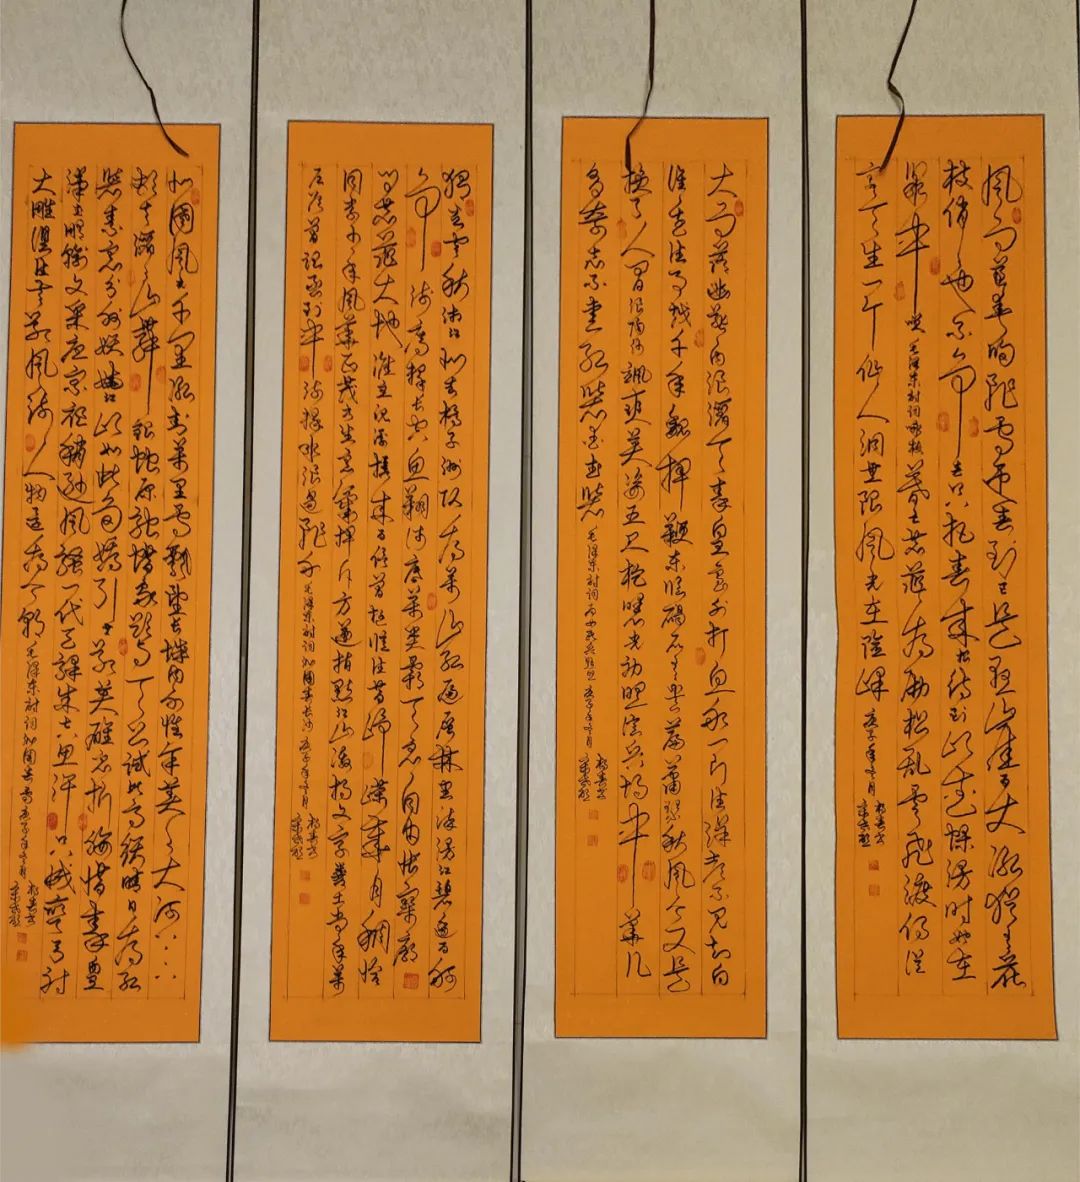 风雨送春归飞雪迎春到已是悬崖百丈冰犹有花
枝俏俏也不争春只把春来报待到山花烂漫时她在
丛中笑毛泽东诗词咏梅暮色苍茫看劲松乱云飞渡仍从
容天生一个仙人洞无限风光在险峰
大雨落幽燕白浪滔天秦皇岛外打鱼船一片汪洋都不见知向
谁边往事越千年魏武挥鞭东临碣石有遗篇萧瑟秋风今又是
换了人间浪陶沙飒爽英姿五尺枪曙光初照演兵场中华儿
女多奇志不爱红装爱武装毛泽东诗词为女民兵题照
独立寒秋湘江北去橘子洲头看万山红遍层林尽染漫江碧透百舸
争流鹰击长空鱼翔浅底万类霜天竞自由怅寥廓
问苍茫大地谁主沉浮携来百侣曾游忆往昔峥嵘岁月稠恰
同学少年风华正茂书生意气挥斥方遒指点江山激扬文字粪土当年万
户侯曾记否到中流击水浪遏飞舟毛泽东诗词沁园春长沙
北国风光千里冰封万里雪飘望长城内外惟余莽莽大河上下
顿失滔滔山舞银蛇原驰蜡象欲与天公试比高须晴日看红
装素裹分外妖娆江山如此多娇引无数英雄竞折腰惜秦皇
汉武略输文采唐宗宋祖稍逊风骚一代天骄成吉思汗只识弯弓射
大雕俱往矣数风流人物还看今朝毛泽东诗词沁园春雪